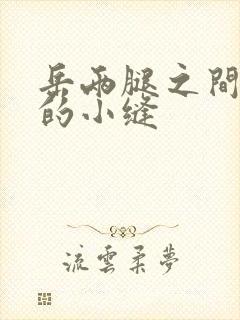 岳兩腿之間
的小缝
流雲柔夢